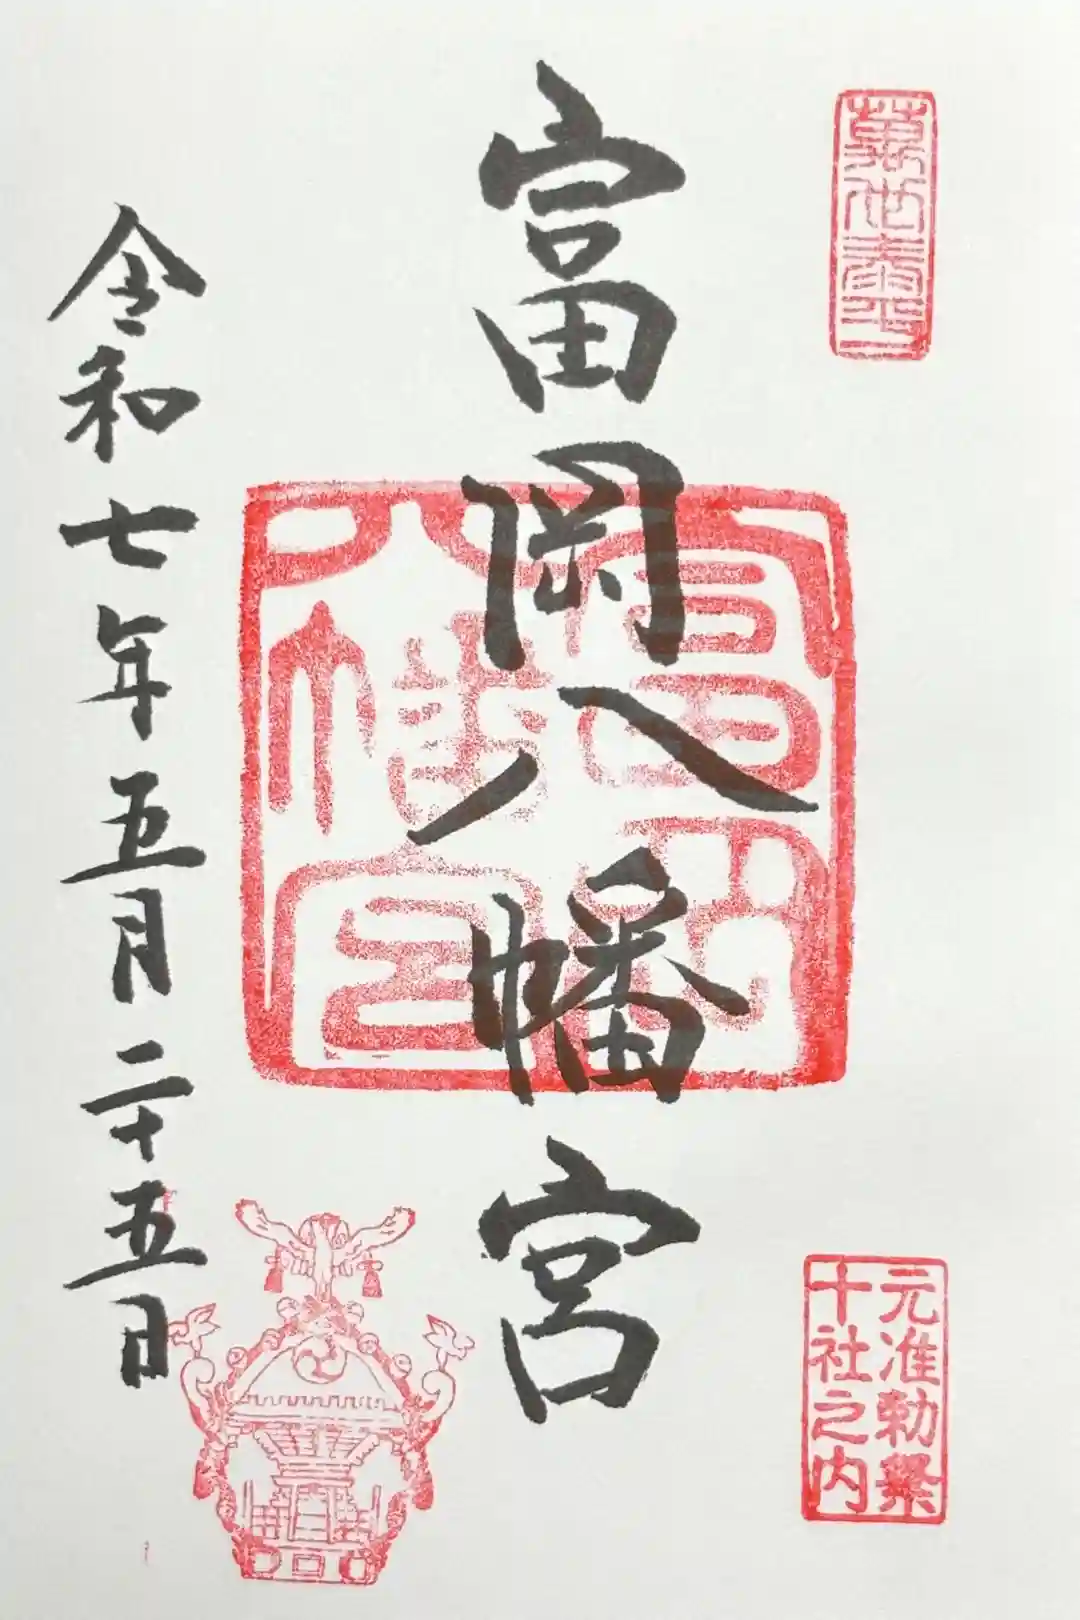 萬世泰平
元准勅祭
十社之内
富岡八幡宮
富岡
八幡宮
令和七年五月二十五日